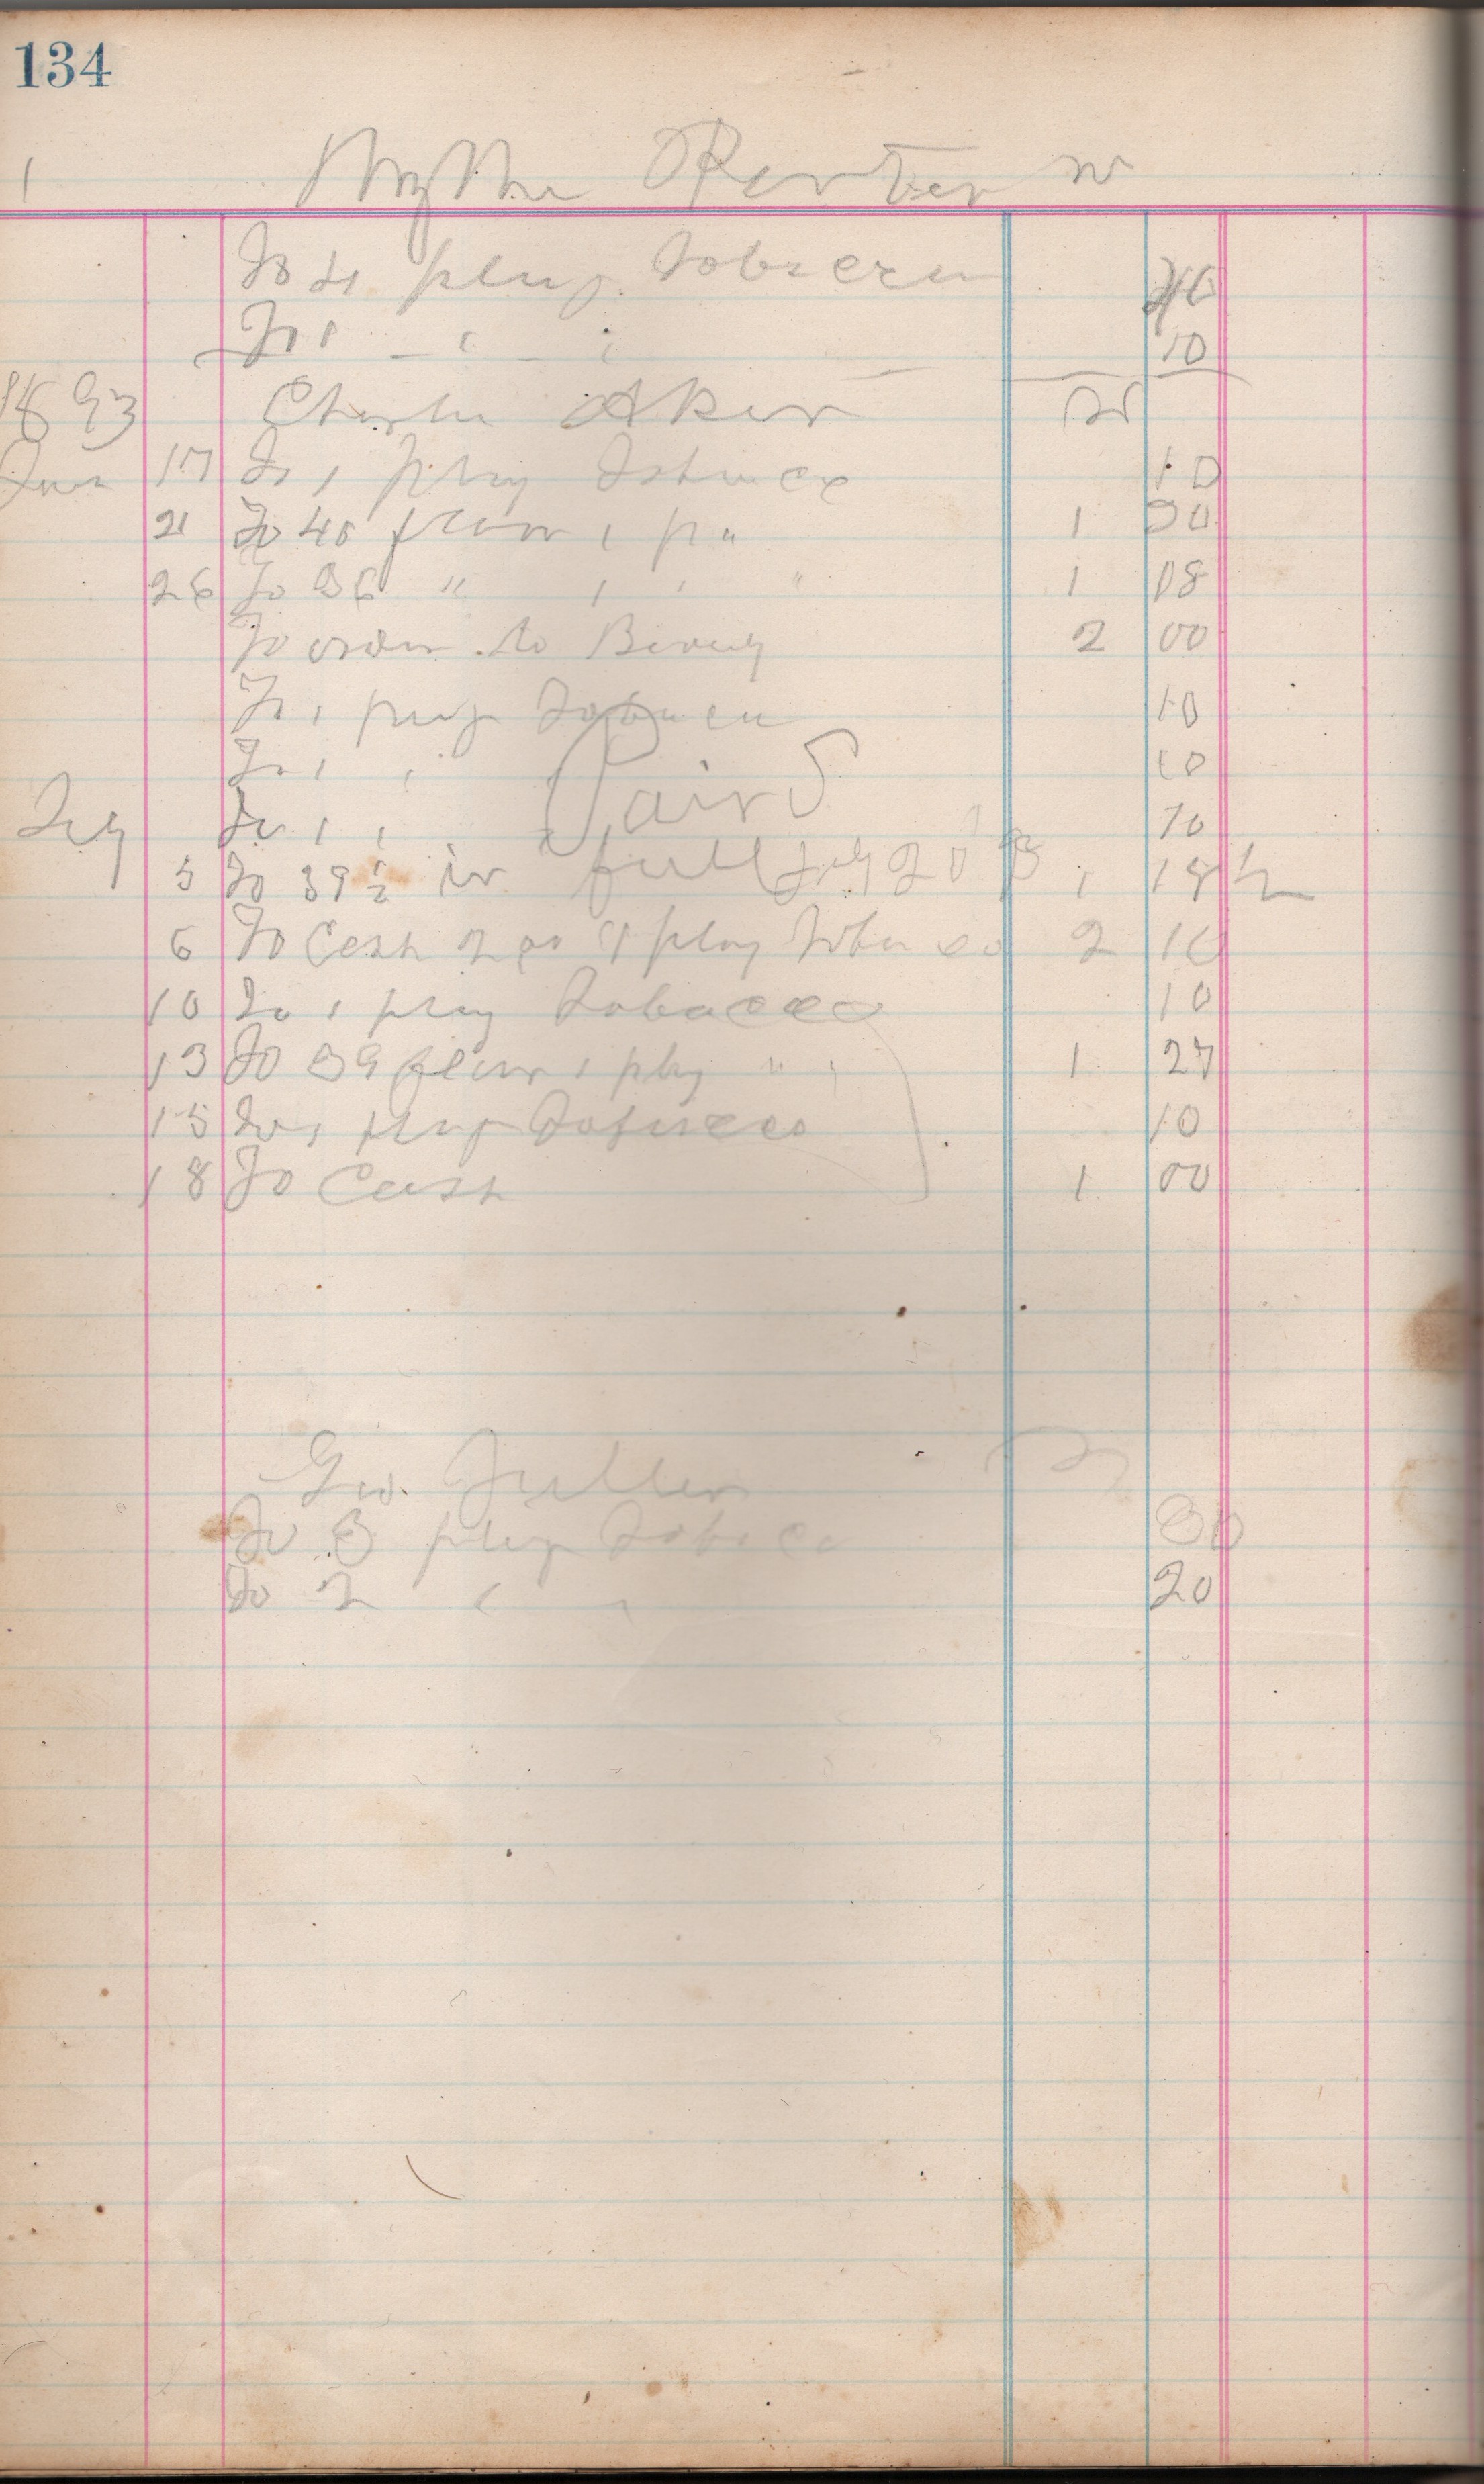 134
1
To 4 plug Tobacco 40
To 1 " " 10
1893 Charlie Aker Dr
June 17 To 1 plug Tobacco 10
21 To 40 flour 1 p " 1 30
26 To 36 " 1 " " 1 08
To order to 2 00
To 1 plug Tobacco 10
To 1 " 10
July To 1 " 10
Paid
5 To 39 1/2 1 18 1/2
in full July 20 93
6 To Cash 2 00 & 1 plug Tobacco 2 10
10 To 1 plug Tobacco 10
13 To 39 flour 1 plug " " 1 27
15 To 1 plug Tobacco 10
18 To Cash 1 00
Geo. Fuller Dr
To 3 plug Tobacco 30
To 2 " " 20